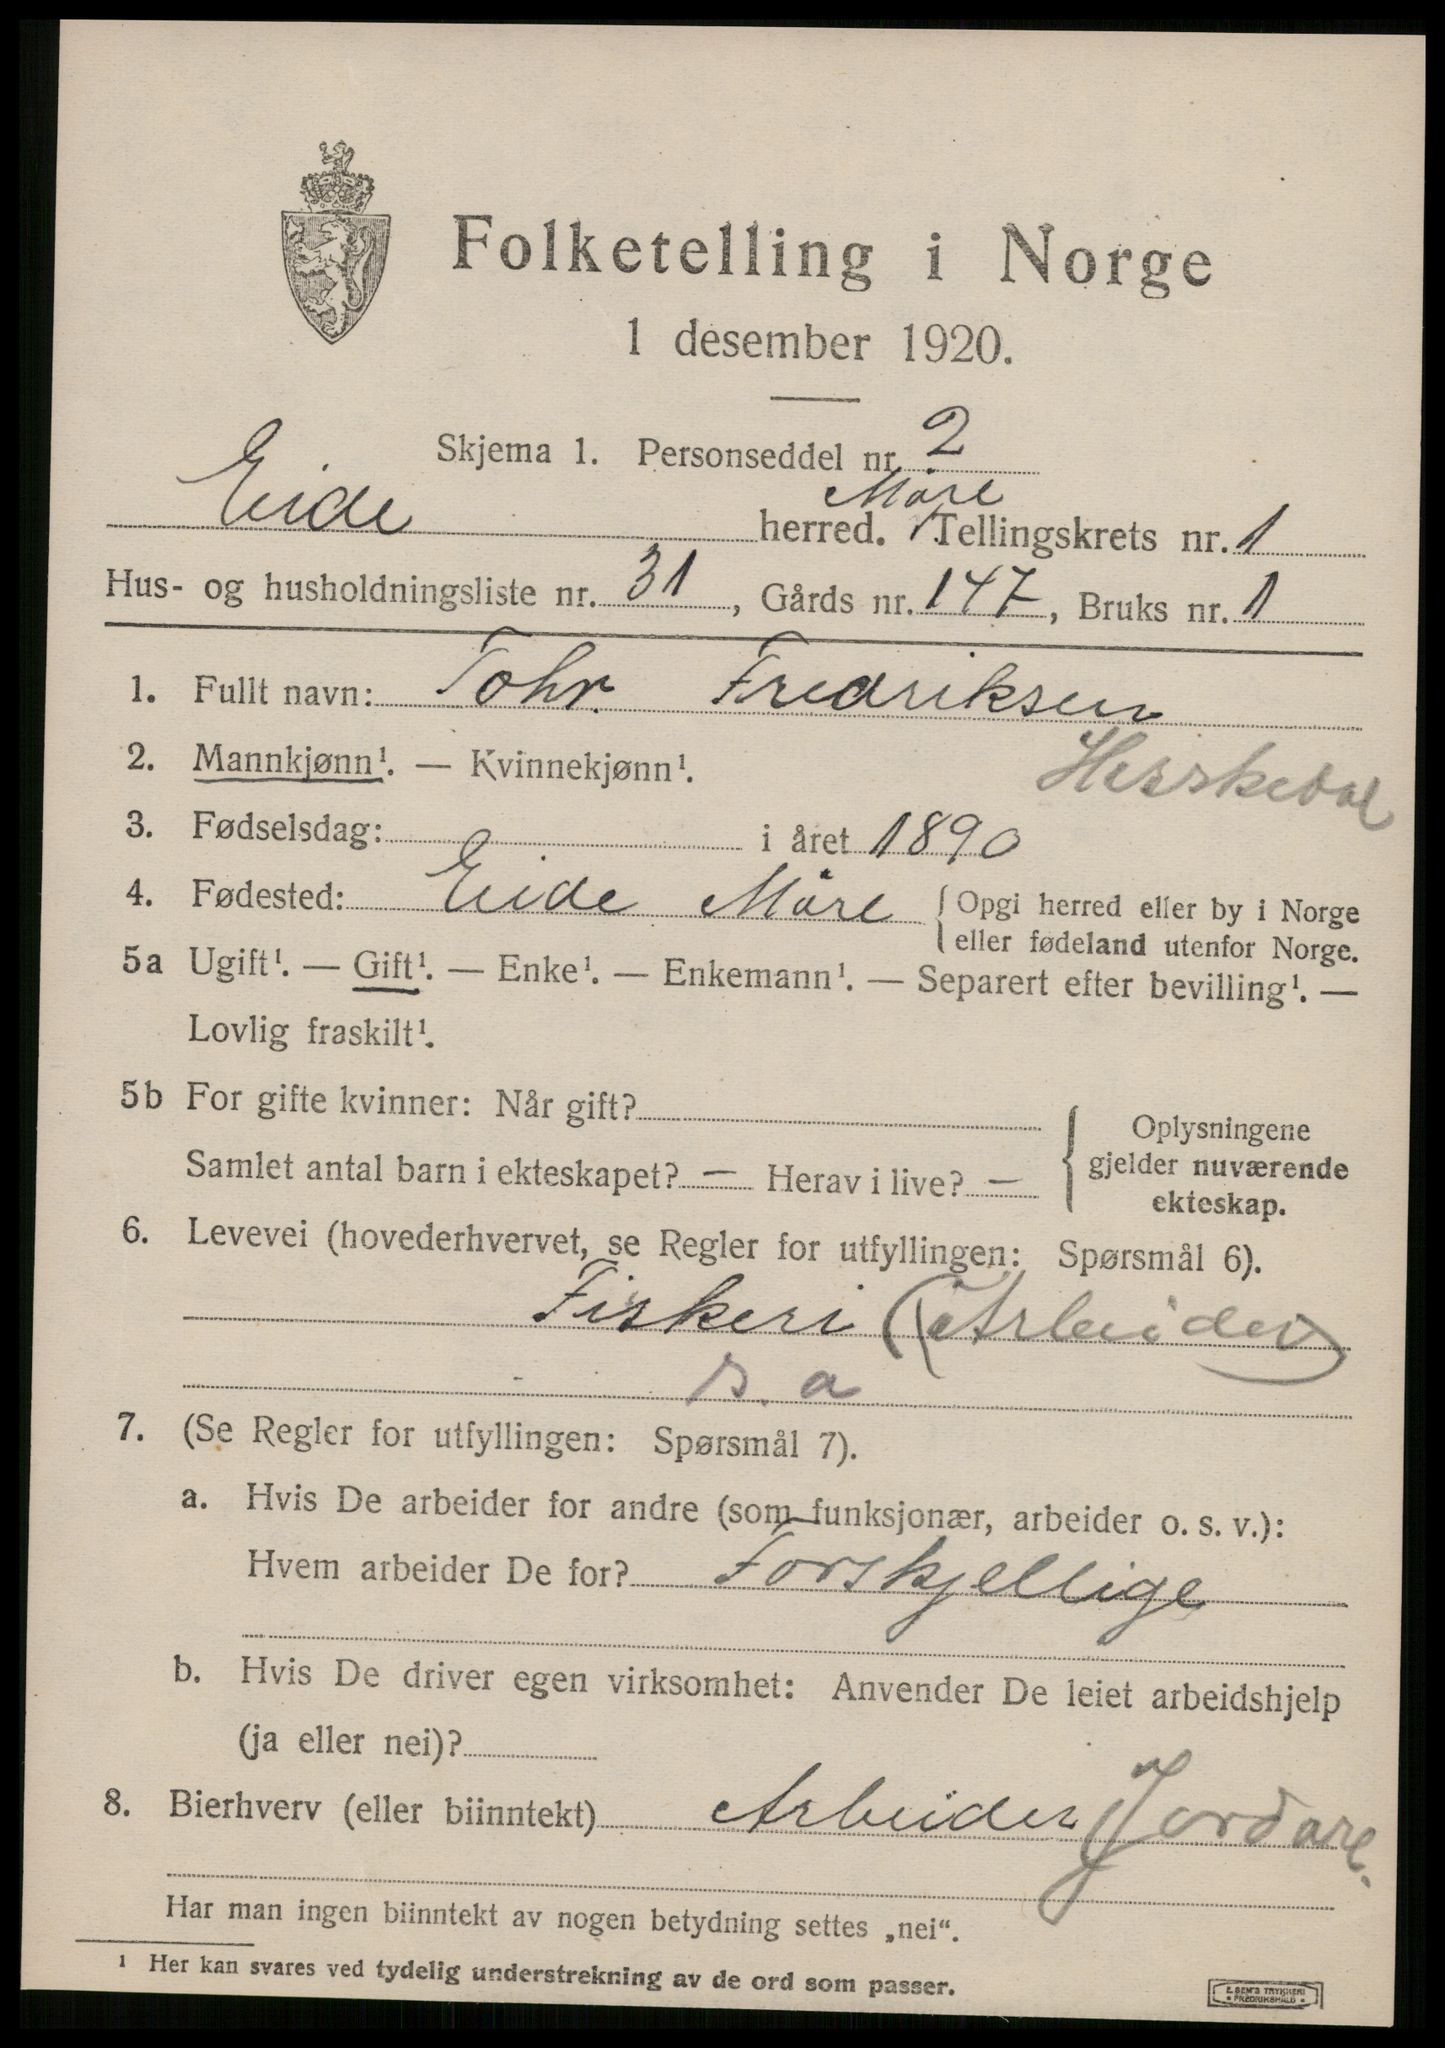 Folketelling i Norge
1 desember 1920.
Skjema 1. Personseddel nr. 2
Eide herred. Møre Tellingskrets nr. 1
Hus- og husholdningsliste nr. 31, Gårds nr. 147, Bruks nr. 1
1. Fullt navn: Tohr. Fredriksen
2. Mannkjønn¹. — Kvinnekjønn¹.
3. Fødselsdag: i året 1890
4. Fødested: Eide Møre { Opgi herred eller by i Norge
eller fødeland utenfor Norge.
5a Ugift¹. — Gift¹. — Enke¹. — Enkemann¹. — Separert efter bevilling¹. —
Lovlig fraskilt¹.
5b For gifte kvinner: Når gift?
Samlet antal barn i ekteskapet? — Herav i live? —
{ Oplysningene
gjelder nuværende
ekteskap.
6. Levevei (hovederhvervet, se Regler for utfyllingen: Spørsmål 6).
Fiskeri (Arbeider)
s. a
7. (Se Regler for utfyllingen: Spørsmål 7).
a. Hvis De arbeider for andre (som funksjonær, arbeider o. s. v.):
Hvem arbeider De for? Forskjellige
b. Hvis De driver egen virksomhet: Anvender De leiet arbeidshjelp
(ja eller nei)?
8. Bierhverv (eller biinntekt) Arbeider Jordarb.
Har man ingen biinntekt av nogen betydning settes „nei“.
¹ Her kan svares ved tydelig understrekning av de ord som passer.
E. SEM'S TRYKKERI
FREDRIKSHALD